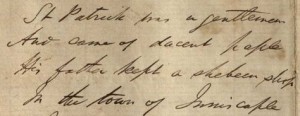 St Patrick was a gentleman
And came of dacent people
His father kept a shebeen shop
In the town of Inniscaple